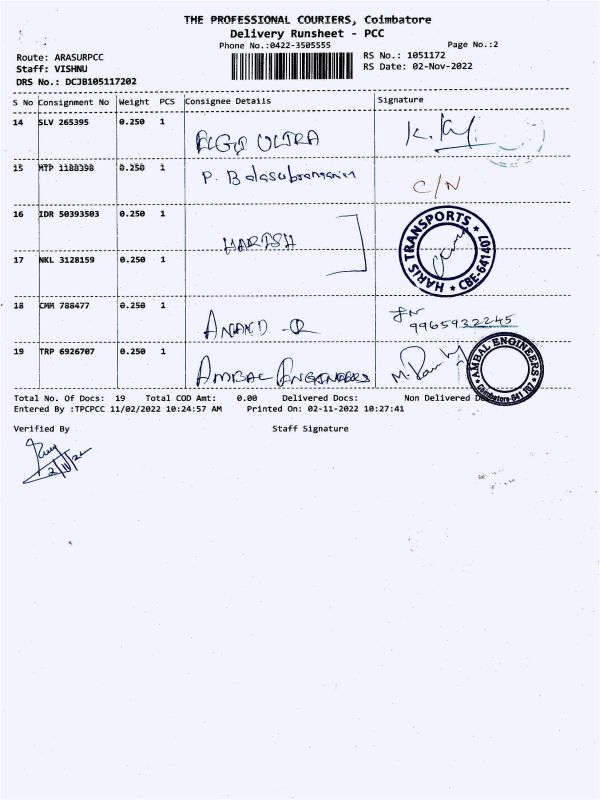 THE PROFESSIONAL COURIERS, Coimbatore
Delivery Runsheet - PCC
Phone No.:0422-3505555
Page No.:2
Route: ARASURPCC
RS No.: 1051172
Staff: VISHNU
RS Date: 02-Nov-2022
DRS No.: DCJB105117202
S No Consignment No Weight PCS Consignee Details Signature
14 SLV 265395 0.250 1 ELGI ULTRA
15 MTP 1188398 0.250 1 P. Balasubramanian C/N
16 IDR 50393503 0.250 1
HARISH
HARIS TRANSPORTS ★ CBE-641407 ★
17 NKL 3128159 0.250 1
18 CMM 788477 0.250 1 ANAND -R
9965932245
19 TRP 6926707 0.250 1 AMBAL ENGINEERS
AMBAL ENGINEERS ★ Coimbatore-641 107 ★
Total No. Of Docs: 19 Total COD Amt: 0.00 Delivered Docs: Non Delivered
Entered By :TPCPCC 11/02/2022 10:24:57 AM Printed On: 02-11-2022 10:27:41
Verified By Staff Signature
2/11/22